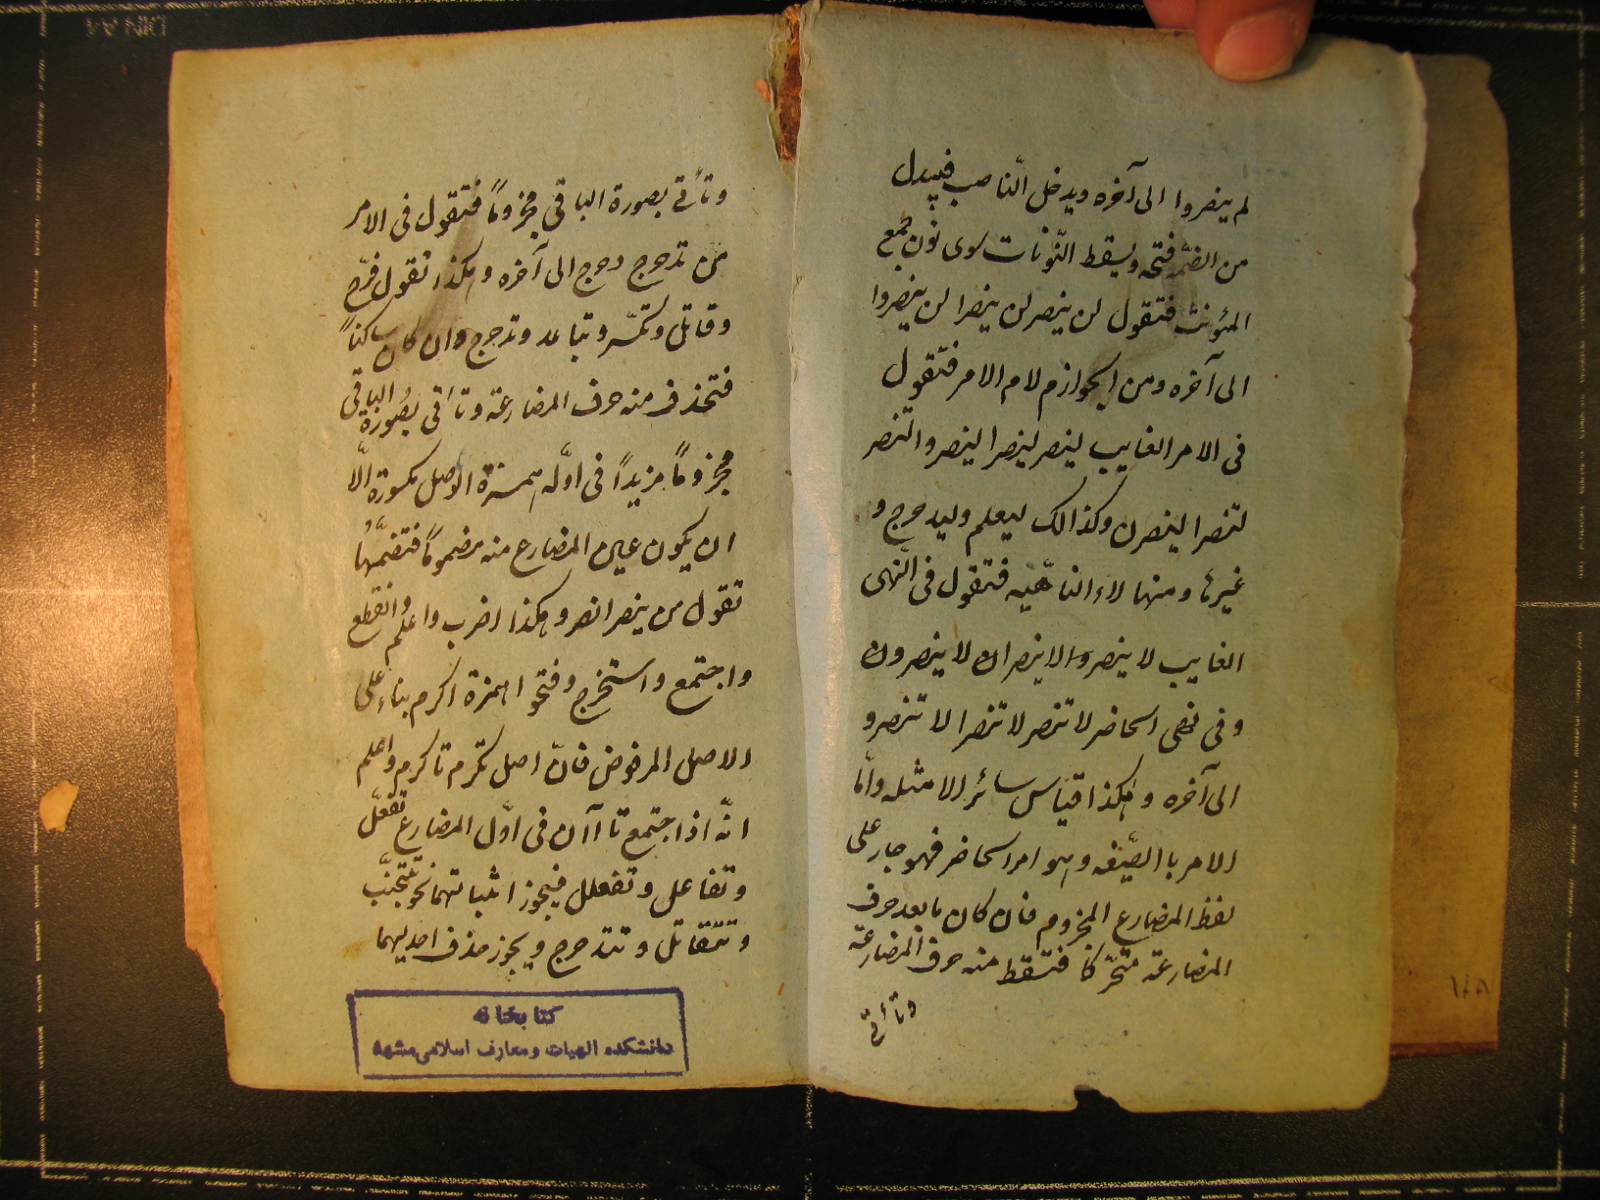 لم ينصروا الى آخره ويدخل النّاصب فيبدل
من الضمّه فتحه ويسقط النّونات سوى نون جمع
المؤنث فتقول لن ينصر لن ينصرا لن ينصروا
الى آخره ومن الجوازم لام الامر فتقول
فى الامر الغايب لينصر لينصرا لينصروا لتنصر
لتنصرا لينصرن وكذالك ليعلم وليدحرج و
غيرها ومنها لاء الناهّيه فتقول فى النّهى
الغايب لا ينصر والا ينصران لا ينصرون
وفى نهى الحاضر لا تنصر لا تنصرا لا تنصرو
الى آخره وهكذا قياس سائر الامثله وامّا
الامر باالصّيغه وهو امر الحاضر فهو جار على
لفظ المضارع المجزوم فان كان ما بعد حرف
المضارعة متحرّكا فتسقط منه حرف المضارعة
وتأتىّ
وتأتىّ بصورة الباقى مجزوماً فتقول فى الامر
من تدحرج دحرج الى آخره وهكذا تقول فرّح
وقاتل وتكسّر وتباعد وتدحرج وان كان ساكناً
فتحذف منه حرف المضارعة وتأتى بصورة الباقى
مجزوماً مزيداً فى اوّله همزة الوصل مكسورة الّا
ان يكون عين المضارع منه مضموماً فتضمّها و
تقول من ينصر انصر وهكذا اضرب واعلم وانقطع
واجتمع واستخرج وفتحوا همزة اكرم بناء على
الاصل المرفوض فانّ اصل تكرم تاكرم واعلم
انّه اذا اجتمع تا آن فى اوّل المضارع تفعّل
وتفاعل وتفعلل فيجوز اثباتهما نحو تتجنّب
وتتقاتل وتتدحرج ويجوز حذف احديهما
كتابخانه
دانشكده الهيات ومعارف اسلامى مشهد
١٧٨